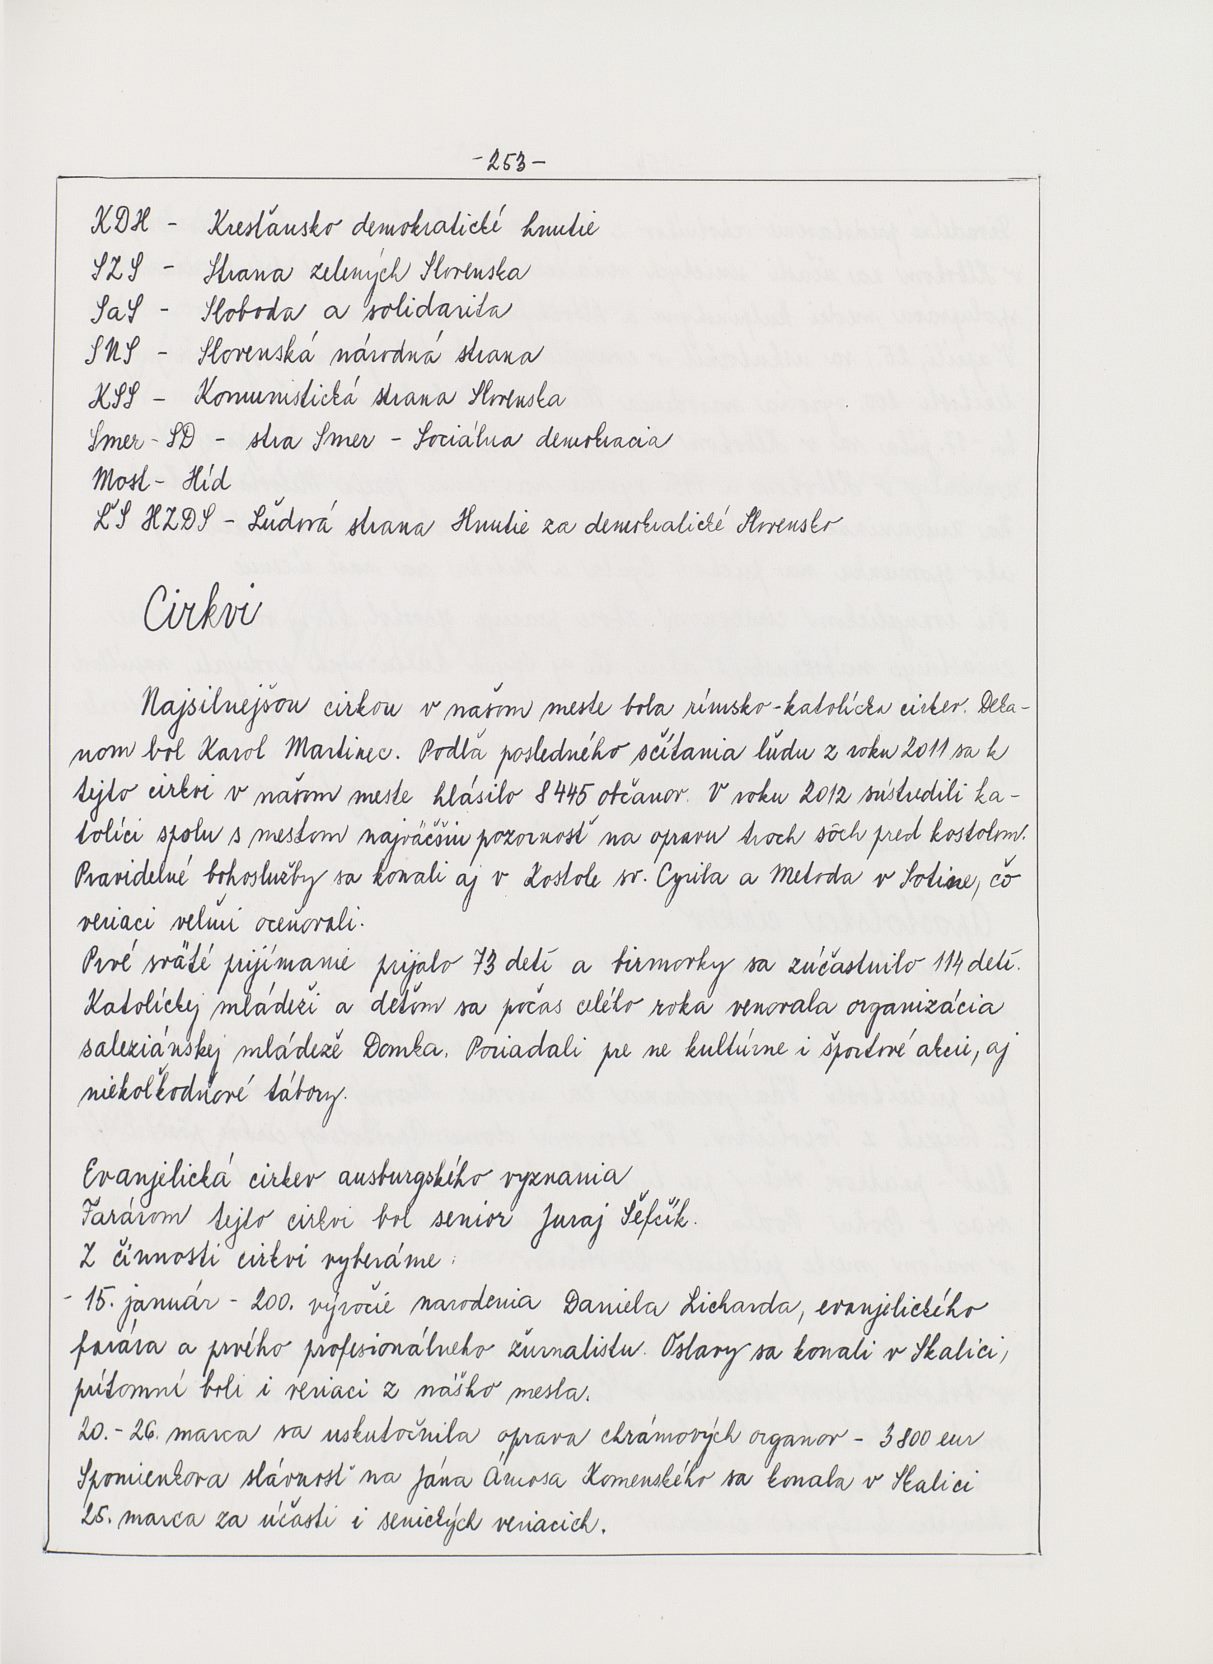 -253-
KDH - Kresťansko demokratické hnutie
SZS - Strana zelených Slovenska
SaS - Sloboda a solidarita
SNS - Slovenská národná strana
KSS - Komunistická strana Slovenska
Smer-SD - stra Smer - Sociálna demokracia
Most - Híd
ĽS HZDS - Ľudová strana Hnutie za demokratické Slovensko
Cirkvi
Najsilnejšou cirkou v našom meste bola rímsko-katolícka cirkev. Deka-
nom bol Karol Martinec. Podľa posledného sčítania ľudu z roku 2011 sa k
tejto cirkvi v našom meste hlásilo 8 445 občanov. V roku 2012 sústredili ka-
tolíci spolu s mestom najväčšiu pozornosť na opravu troch sôch pred kostolom.
Pravidelné bohoslužby sa konali aj v Kostole sv. Cyrila a Metoda v Sotine, čo
veriaci veľmi oceňovali.
Prvé sväté prijímanie prijalo 73 detí a birmovky sa zúčastnilo 114 detí.
Katolíckej mládeži a deťom sa počas celého roka venovala organizácia
saleziánskej mládeže Domka. Poriadali pre ne kultúrne i športové akcie, aj
niekoľkodňové tábory.
Evanjelická cirkev ausburgského vyznania
Farárom tejto cirkvi bol senior Juraj Šefčík.
Z činnosti cirkvi vyberáme:
- 15. január - 200. výročie narodenia Daniela Licharda, evanjelického
farára a prvého profesionálneho žurnalistu. Oslavy sa konali v Skalici,
prítomní boli i veriaci z nášho mesta.
20.-26. marca sa uskutočnila oprava chrámových organov - 3 800 eur
Spomienkova slávnosť na Jána Ámosa Komenského sa konala v Skalici
25. marca za účasti i senických veriacich.